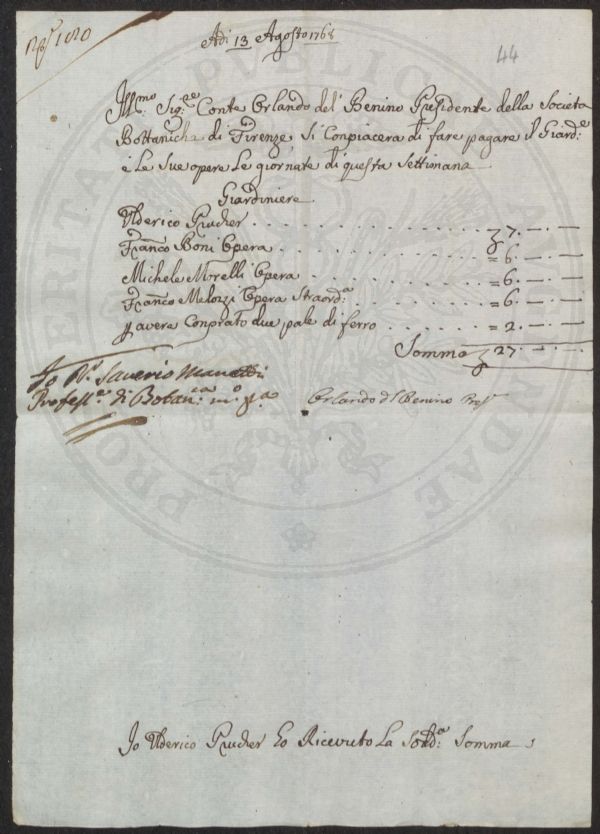 Adi 13 Agosto 1768
44
Ill:mo Sig:re Conte Orlando del Benino Presidente della Societa
Bottanicha di Firenze, Si Conpiacera di fare pagare il Giard:e
e Le Sue opere Le giornate di questa Settimana
Giardiniere
Ulderico Prucher . . . . . . . 7. — . —
Franco Boni Opera . . . . . . . = 6. — . —
Michele Morelli Opera . . . . . . . = 6. — . —
Franco Melozzi Opera Straord:a . . . . = 6. — . —
p avere Conprato due pale di ferro . . . . = 2. — . —
Somma 27. — . —
Io D. Saverio Manetti
Profess:e di Botan:ca m:o p:a
Orlando del Benino Pres:e
Io Ulderico Prucher Ho Ricevuto La Sodd:a Somma
PRO VERITATE